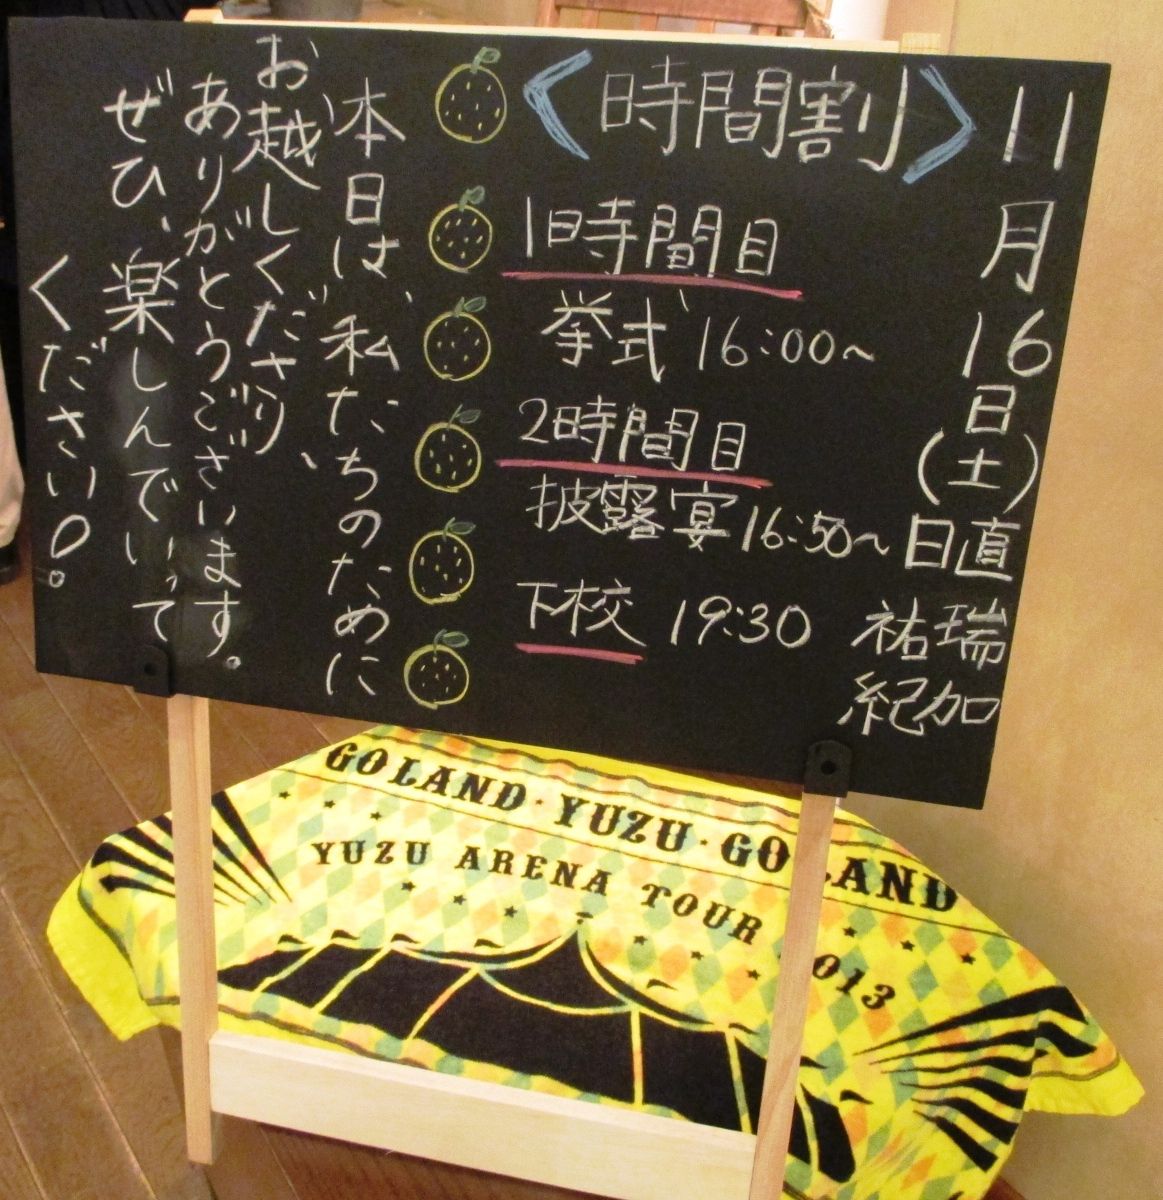 11月16日(土)
日直
瑞加
祐紀
〈時間割〉
1時間目
挙式 16:00~
2時間目
披露宴16:50~
下校 19:30
本日は、私たちのために
お越しくださり、
ありがとうございます。
ぜひ、楽しんでいって
ください!
GOLAND・YUZU・GOLAND
YUZU ARENA TOUR 2013